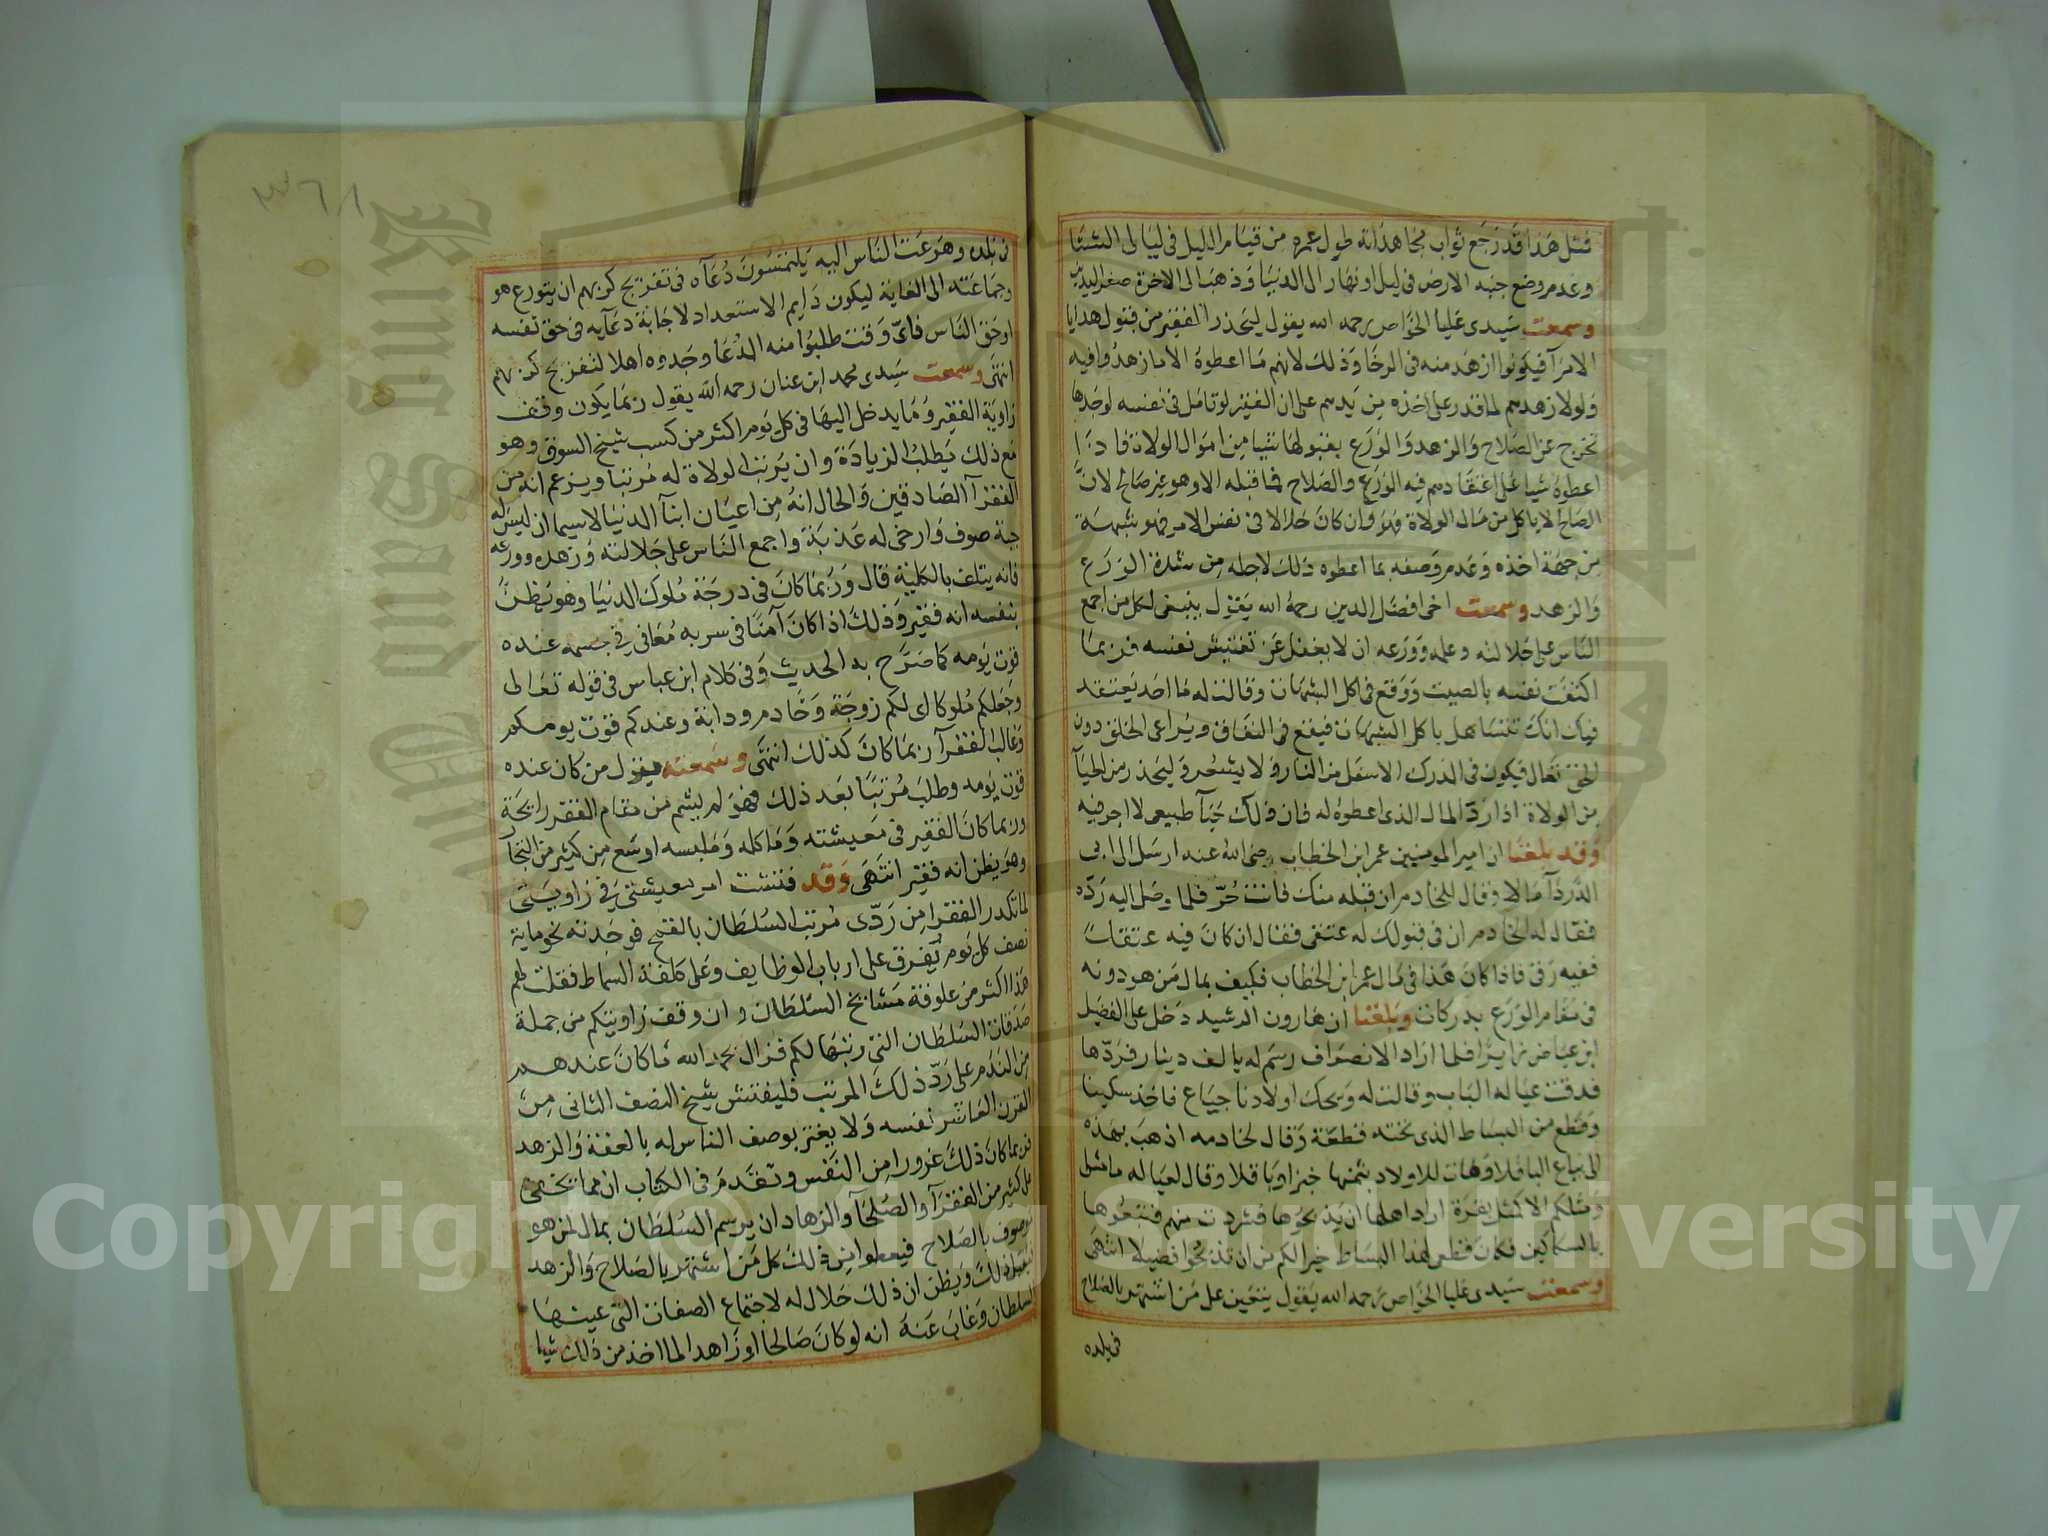 فمثل هذا قد رجع ثواب مجاهداته طول عمره من قيام الليل في ليالي الشتا
وعدم وضع جنبه الارض في ليل او نهار الى الدنيا وذهب الى الاخرة صفر اليدين
وسمعت سيدي عليا الخواص رحمه الله يقول ليحذر الفقير من قبول هدايا
الامرآ فيكونوا ازهد منه في الرخا وذلك لانهم ما اعطوه الا ما زهدوا فيه
ولولا زهدهم لما قدر على اخذه من يدهم على ان الفقير لو تامل في نفسه لوجدها
تخرج عن الصلاح والزهد والورع بقبولها شيا من اموال الولاة فاذا
اعطوه شيا على اعتقادهم فيه الورع والصلاح فما قبله الا وهو غير صالح لان
الصالح لا ياكل من مال الولاة فهو وان كان حلالا في نفس الامر فهو شبهة
من جهة اخذه وعدم وصفه بما اعطوه ذلك لاجله من شدة الورع
والزهد وسمعت اخي افضل الدين رحمه الله يقول ينبغي لكل من اجمع
الناس على جلالته وعلمه وورعه ان لا يغفل عن تفتيش نفسه فربما
اكتفت نفسه بالصيت ووقع في اكل الشبهات وقالت له ما احد يعتقد
فيك انك تتساهل باكل الشبهات فيقع في النفاق ويراعي الخلق دون
الحق تعالى فيكون في الدرك الاسفل من النار ولا يشعر وليحذر من الحيآ
من الولاة اذا رد المال الذي اعطوه له فان ذلك حيآ طبيعي لا اجر فيه
وقد بلغنا ان امير المومنين عمر ابن الخطاب رضي الله عنه ارسل الى ابي
الدردآ مالا وقال للخادم ان قبله منك فانت حر فلما وصل اليه رده
فقال له الخادم ان في قبولك له عتقي فقال ان كان فيه عتقك
ففيه رقي فاذا كان هذا في مال عمر ابن الخطاب فكيف بمال من هو دونه
في مقام الورع بدركات وبلغنا ان هارون الرشيد دخل على الفضيل
ابن عياض زايرا فلما اراد الانصراف رسم له بالف دينار فردها
فدقت عياله الباب وقالت له ويحك اولادنا جياع فاخذ سكينا
وقطع من البساط الذي تحته قطعة وقال لخادمه اذهب بهذه
الى بياع الباقلا وهات للاولاد بثمنها خبزا وباقلا وقال لعياله ما مثلي
ومثلكم الا كمثل بقرة اراد اهلها ان يذبحوها فشردت منهم فتبعوها
بالسكاكين فكان قطعي لهذا البساط خيرا لكم من ان تذبحوا فضيلا انتهى
وسمعت سيدي عليا الخواص رحمه الله يقول يتعين على من اشتهر بالصلاح
في بلده
٣٦٨
في بلده وهرعت الناس اليه يلتمسون دعآه في تفريج كربهم ان يتورع هو
وجماعته الى الغاية ليكون دايم الاستعداد لاجابة دعآيه في حق نفسه
او حق الناس فاي وقت طلبوا منه الدعا وجدوه اهلا لتفريج كربهم
انتهى وسمعت سيدي محمد ابن عنان رحمه الله يقول ربما يكون وقف
زاوية الفقير وما يدخل اليها في كل يوم اكثر من كسب شيخ السوق وهو
مع ذلك يطلب الزيادة وان يرتب الولاة له مرتبا ويزعم انه من
الفقرآ الصادقين والحال انه من اعيان ابنآ الدنيا لا سيما ان لبس له
جبة صوف وارخى له عذبة واجمع الناس على جلالته وزهده وورعه
فانه يتلف بالكلية قال وربما كان في درجة ملوك الدنيا وهو يظن
بنفسه انه فقير وذلك اذا كان آمنا في سربه معافى في جسمه عنده
قوت يومه كما صرح به الحديث وفي كلام ابن عباس في قوله تعالى
وجعلكم ملوكا اي لكم زوجة وخادم ودابة وعندكم قوت يومكم
وغالب الفقرآ ربما كان كذلك انتهى وسمعته يقول من كان عنده
قوت يومه وطلب مرتبا بعد ذلك فهو لم يشم من مقام الفقر رايحة
وربما كان الفقير في معيشته وماكله وملبسه اوسع من كثير من التجار
وهو يظن انه فقير انتهى وقد فتشت امر معيشتي في زاويتي
لما تكدر الفقرا من ردي مرتب السلطان بالقمح فوجدته نحو ماية
نصف كل يوم يفرق على ارباب الوظايف وعلى كلفة السماط فقلت لهم
هذا اكثر من علوفة مشايخ السلطان وان وقف زاويتكم من جملة
صدقات السلطان التي رتبها لكم فزال بحمد الله ما كان عندهم
من الندم على رد ذلك المرتب فليفتش شيخ النصف الثاني من
القرن العاشر نفسه ولا يغتر بوصف الناس له بالعفة والزهد
فربما كان ذلك غرورا من النفس وتقدم في الكتاب ان مما يخفى
على كثير من الفقرآ والصلحآ والزهاد ان يرسم السلطان بمال لمن هو
موصوف بالصلاح فيعطوا من ذلك كل من اشتهر بالصلاح والزهد
فيقبل ذلك ويظن ان ذلك حلال له لاجتماع الصفات التي عينها
السلطان وغاب عنه انه لو كان صالحا او زاهدا لما اخذ من ذلك شيا
King Saud University
Copyright © King Saud University